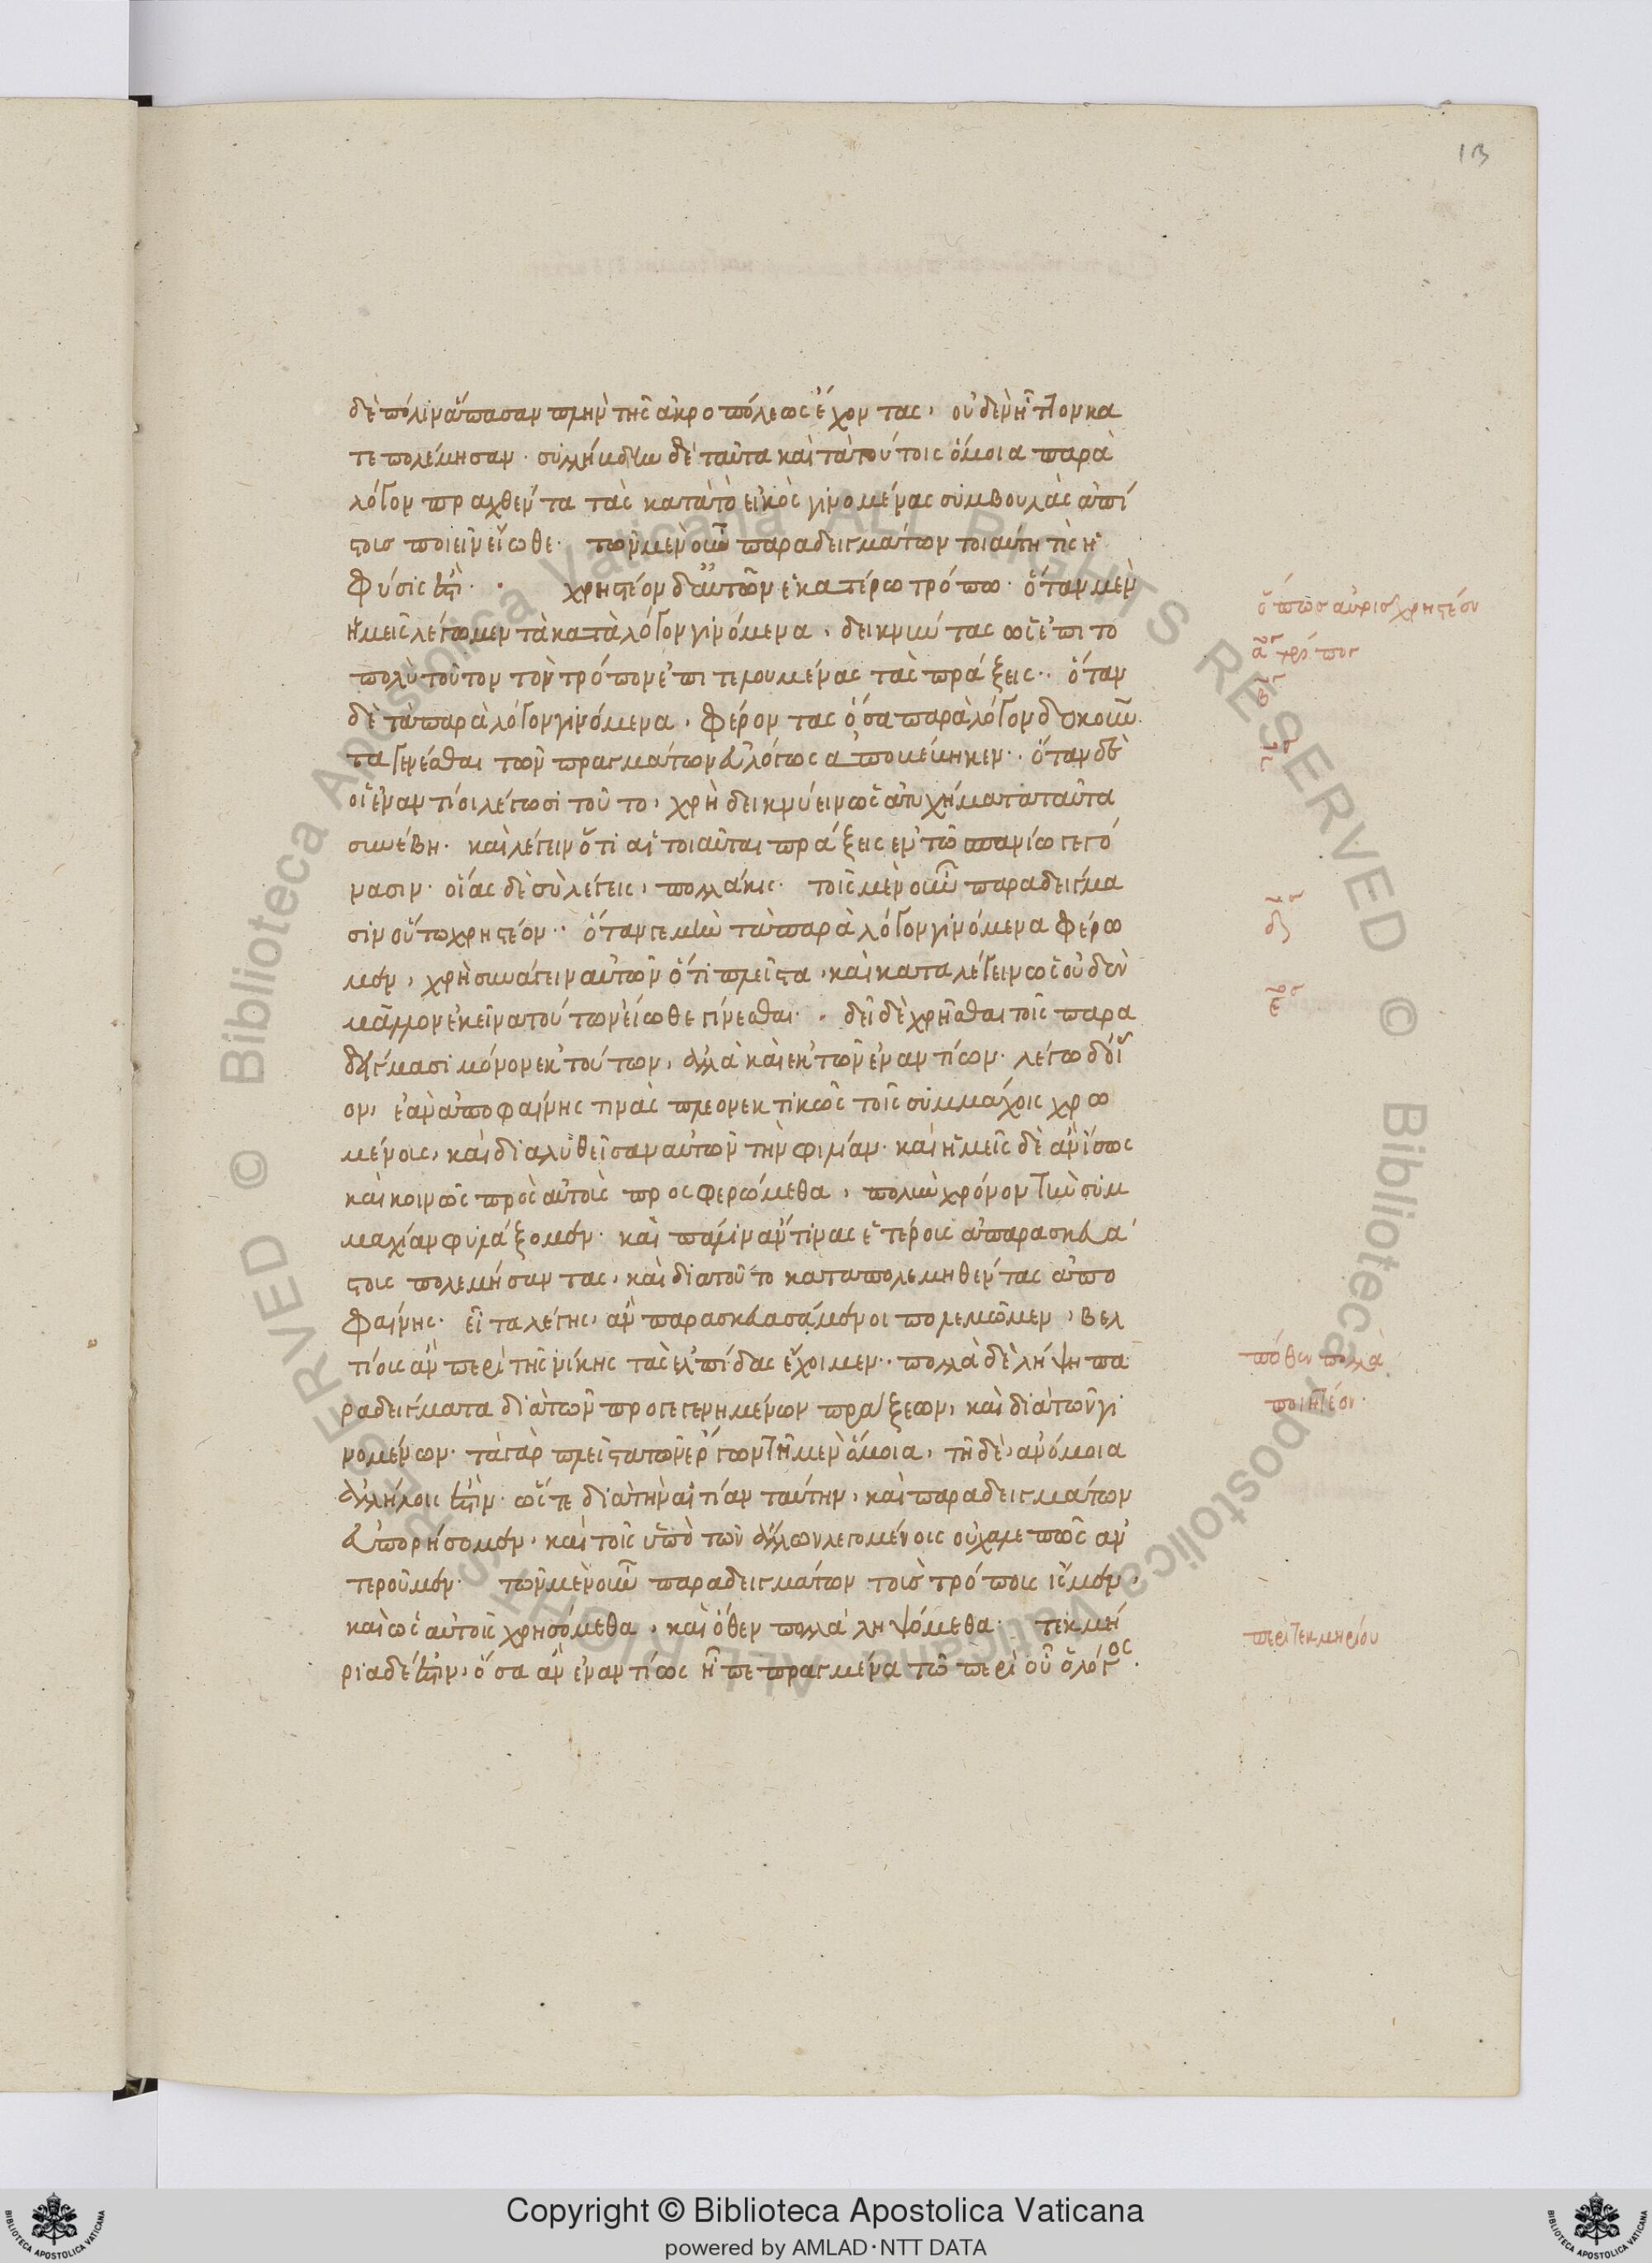 13
δὲ πόλιν ἅπασαν πλὴν τῆς ἀκροπόλεως ἔχοντας, οὐδὲν ἧττον κα
τεπολέμησαν. συλλήβδην δὲ ταῦτα καὶ τὰ τούτοις ὅμοια παρὰ
λόγον πραχθέντα τὰς κατὰ τὸ εἰκὸς γινομένας συμβουλὰς ἀπί
στους ποιεῖν εἴωθε. τῶν μὲν οὖν παραδειγμάτων τοιαύτη τις ἡ
φύσις ἐστί. χρηστέον δ' αὐτῶν ἑκατέρω τρόπω. ὅταν μὲν
ἡμεῖς λέγωμεν τὰ κατὰ λόγον γινόμενα, δεικνύντας ὡς ἐπὶ τὸ
πολὺ τοῦτον τὸν τρόπον ἐπιτελουμένας τὰς πράξεις. ὅταν
δὲ τὰ παρὰ λόγον γινόμενα, φέροντας ὅσα παρὰ λόγον δοκοῦν
τα γενέσθαι τῶν πραγμάτων εὐλόγως ἀποβέβηκεν. ὅταν δὲ
οἱ ἐναντίοι λέγωσι τοῦτο, χρὴ δεικνύειν ὡς εὐτυχήματα ταῦτα
συνέβη. καὶ λέγειν ὅτι αἱ τοιαῦται πράξεις ἐν τῶ σπανίω γεγό
νασιν. οἵας δὲ σὺ λέγεις, πολλάκις. τοῖς μὲν οὖν παραδείγμα
σιν οὕτω χρηστέον. ὅταν γε μὴν τὰ παρὰ λόγον γινόμενα φέρω
μεν, χρὴ συνάγειν αὐτῶν ὅτι πλεῖστα, καὶ καταλέγειν ὡς οὐδὲν
μᾶλλον ἐκεῖνα τούτων εἴωθε γίνεσθαι. δεῖ δὲ χρῆσθαι τοῖς παρα
δείγμασι μόνον ἐκ τούτων, ἀλλὰ καὶ ἐκ τῶν ἐναντίων. λέγω δ' οἷ
ον, ἐὰν ἀποφαίνης τινὰς πλεονεκτικῶς τοῖς συμμάχοις χρω
μένους, καὶ διαλυθεῖσαν αὐτῶν τὴν φιλίαν. καὶ ἡμεῖς δὲ ἂν ἴσως
καὶ κοινῶς πρὸς αὐτοὺς προσφερώμεθα, πολὺν χρόνον τὴν συμ
μαχίαν φυλάξομεν. καὶ πάλιν ἄν τινας ἑτέρους ἀπαρασκευά
στους πολεμήσαντας, καὶ διὰ τοῦτο καταπολεμηθέντας ἀπο
φαίνης. εἶτα λέγης, ἂν παρασκευασάμενοι πολεμῶμεν, βελ
τίους ἂν περὶ τῆς νίκης τὰς ἐλπίδας ἔχοιμεν. πολλὰ δὲ λήψη πα
ραδείγματα διὰ τῶν προγεγενημένων πράξεων, καὶ διὰ τῶν γι
νομένων. τὰ γὰρ πλεῖστα τῶν ἔργων τῆ μὲν ὅμοια, τῆ δὲ, ἀνόμοια
ἀλλήλοις ἐστίν. ὥστε διὰ τὴν αἰτίαν ταύτην, καὶ παραδειγμάτων
εὐπορήσομεν, καὶ τοῖς ὑπὸ τῶν ἄλλων λεγομένοις οὐ χαλεπῶς ἀν
τεροῦμεν. τῶν μὲν οὖν παραδειγμάτων τοὺς τρόπους ἴσμεν,
καὶ ὡς αὐτοῖς χρησόμεθα, καὶ ὅθεν πολλὰ ληψόμεθα. τεκμή
ρια δέ ἐστιν, ὅσα ἂν ἐναντίως ἦ πεπραγμένα τῶ περὶ οὗ ὁ λόγος.
πόθεν πολλὰ
ποιητέον.
περὶ τεκμηρίου
© Biblioteca Apostolica Vaticana ALL RIGHTS RESERVED © Biblioteca Apostolica Vaticana ALL RIGHTS RESERVED
Copyright © Biblioteca Apostolica Vaticana
powered by AMLAD·NTT DATA
BIBLIOTECA APOSTOLICA VATICANA
BIBLIOTECA APOSTOLICA VATICANA